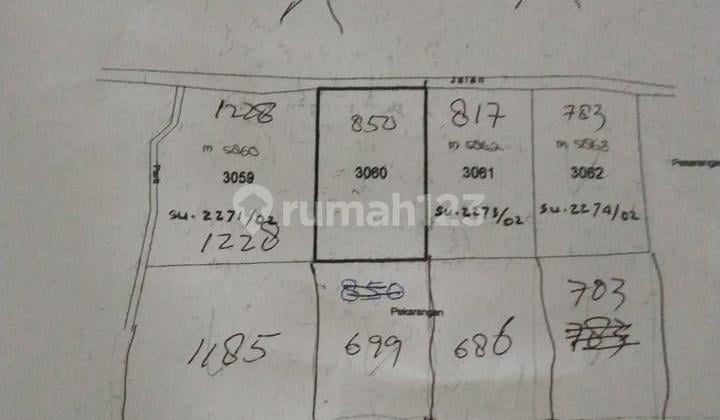 Jalan
1228
850
817
783
m 5860
m 5862
m 5863
3059
3060
3061
3062
Pekarangan
Parit
su.2271/02
su.2273/02
su.2274/02
1228
rumah123
850
703
Pekarangan
783
1185
699
686